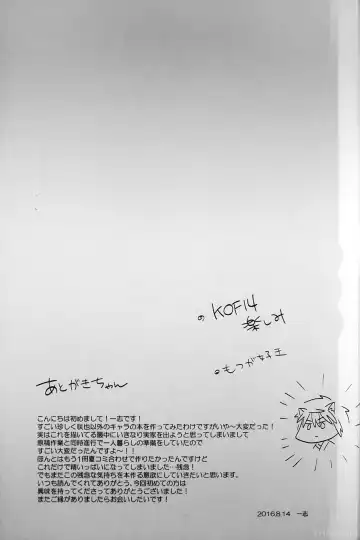 KOF14
楽しみ
あとがきちゃん
こんにちは初めまして！一志です！
すごい珍しく咲也以外のキャラの本を作ってみたわけですがいや〜大変だった！
実はこれを描いてる最中にいきなり実家を出ようと思ってしまいまして
原稿作業と同時進行で一人暮らしの準備をしていたので
すごい大変だったんですよ〜！！
ほんとはもう1冊夏コミ合わせで作りたかったんですけど
これだけで精いっぱいになってしまいました…残念！
でもまたこの残念な気持ちを本作る意欲にしていきたいと思います。
いつも読んでくれてありがとう、今回初めての方は
興味を持ってくださってありがとうございました！
またご縁がありましたらお会いしたいです！
2016.8.14 一志